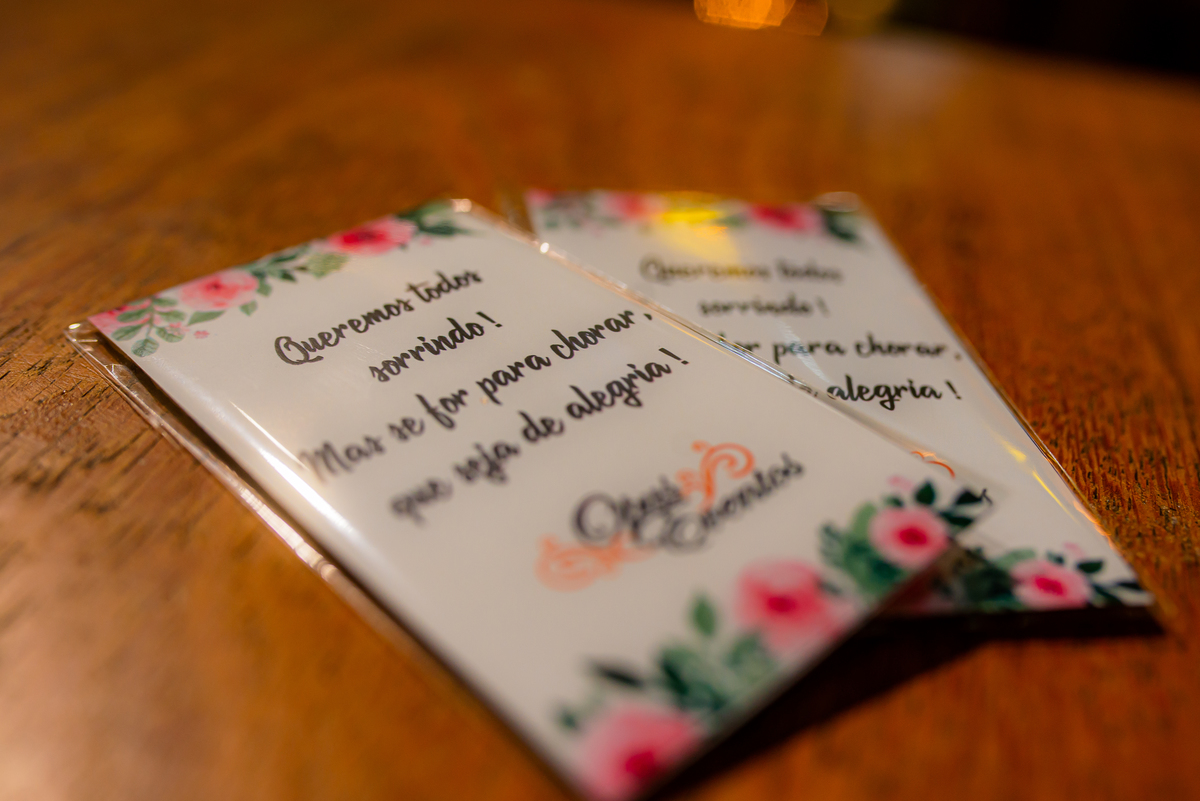 Queremos todos
sorrindo!
Mas se for para chorar,
que seja de alegria!
Eventos
Queremos todos
sorrindo!
for para chorar,
alegria!